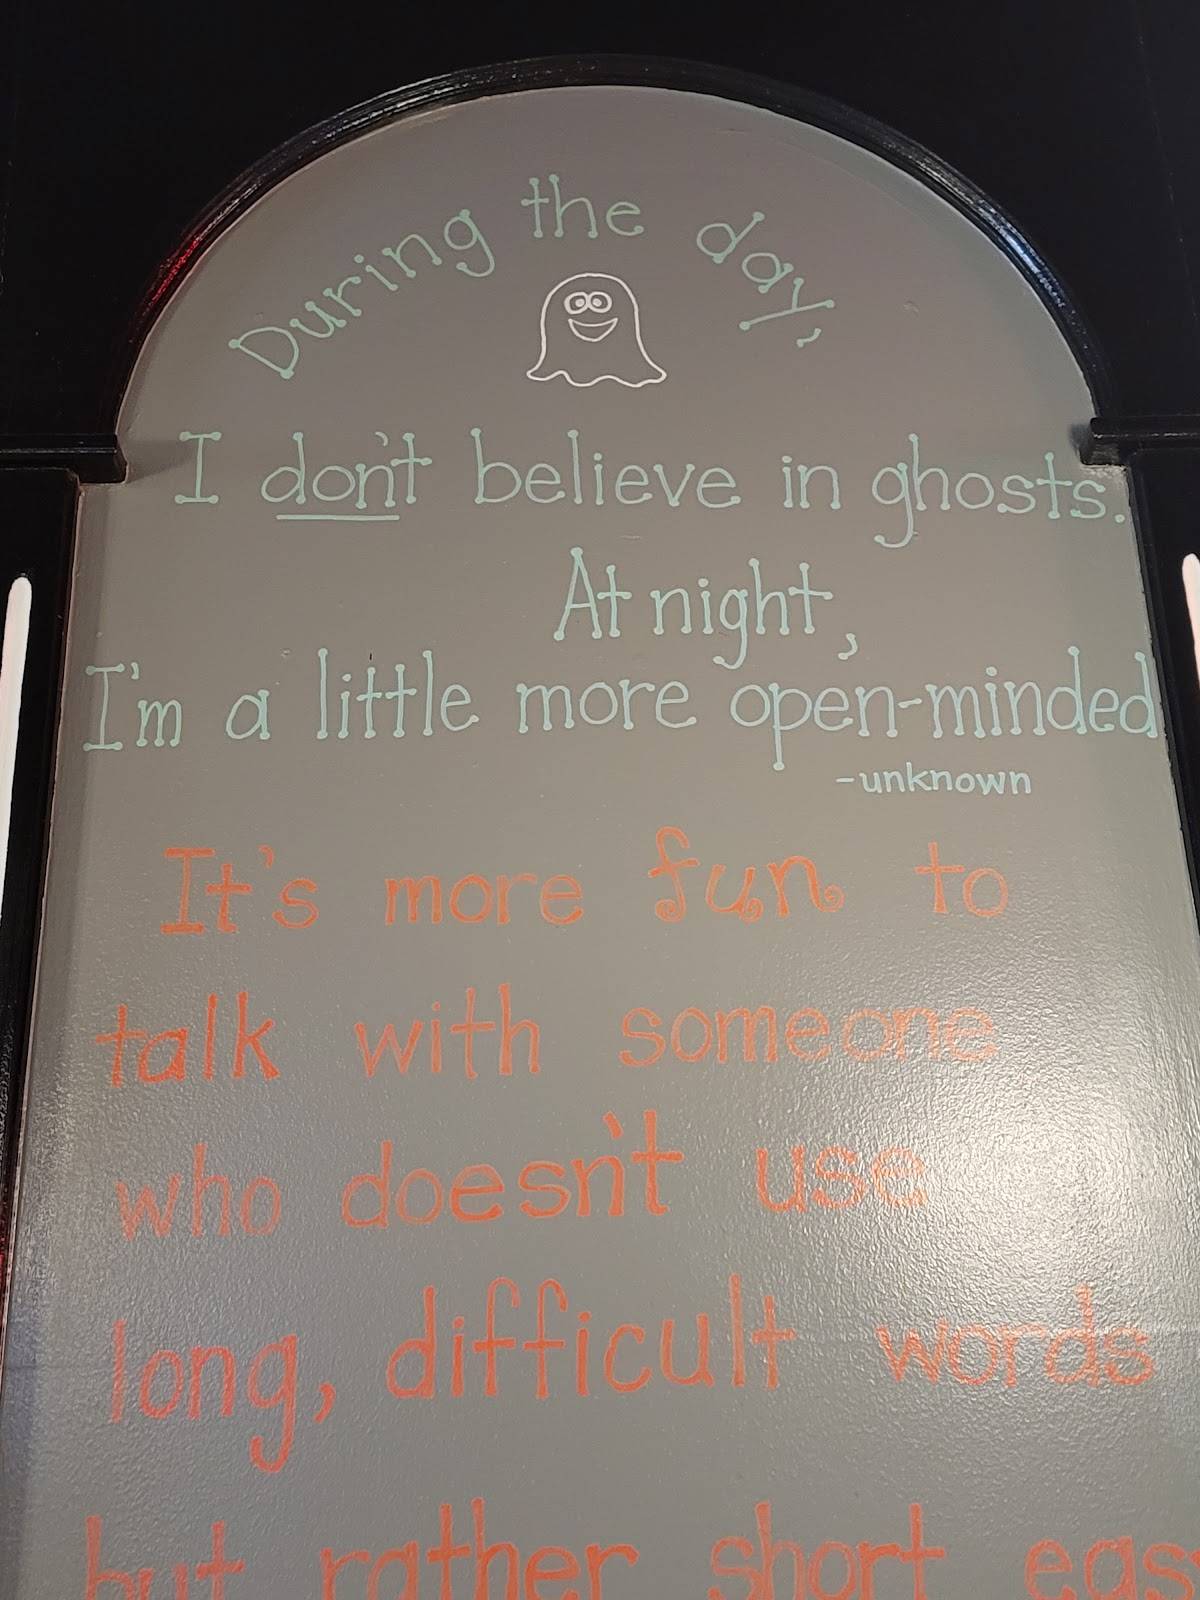 During the day,
I don't believe in ghosts.
At night,
I'm a little more open-minded
-unknown
It's more fun to
talk with someone
who doesn't use
long, difficult words
but rather short